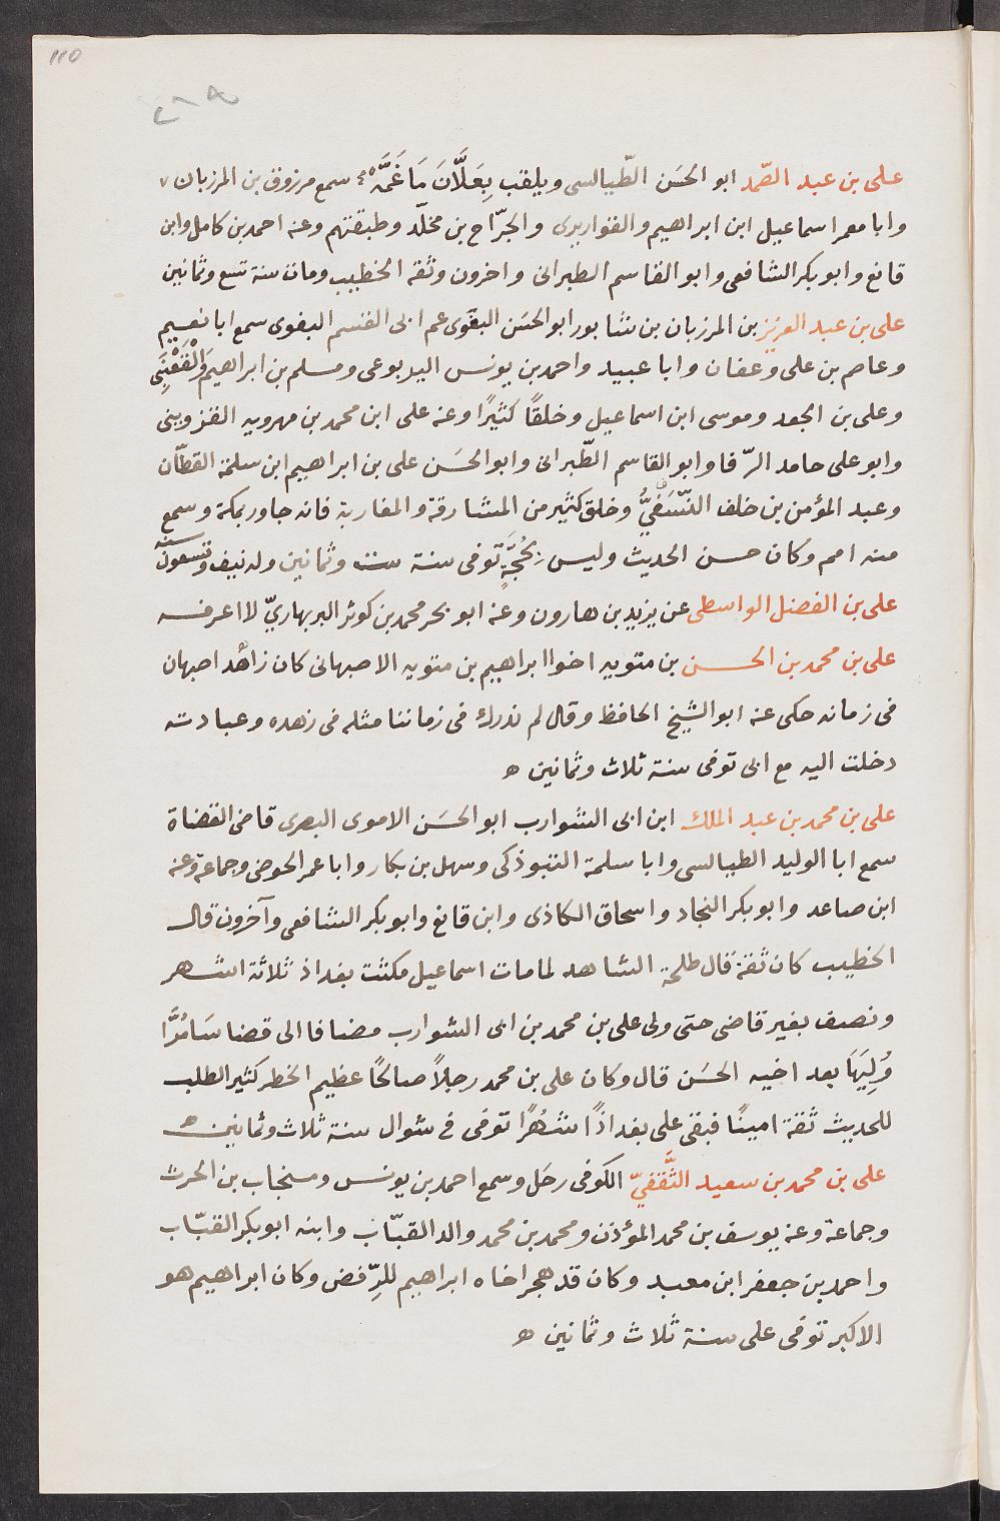 110
على بن عبد الصّمد ابو الحَسَن الطّيالسى ويلقب بِعَلَّانَ مَا غَمَّهُ سمع مرزوق بن المرزبان
وابا معمر اسماعيل ابن ابراهيم والقواريرى والجرّاح بن مخلّد وطبقتهم وعنه احمد بن كامل وابن
قانع وابو بكر الشافعى وابو القاسم الطبرانى واخرون وثقه الخطيب ومات سنة تسع وثمانين
على بن عبد العزيز بن المرزبان بن شابور ابو الحسَن البغَوى عم ابى القسم البغوى سمع ابا نعيم
وعاصم بن على وعفان وابا عبيد واحمد بن يونس اليربوعى ومسلم بن ابراهيم وَالْقَعْنَبِى
وعلى بن الجعد وموسى ابن اسماعيل وخلقًا كثيرًا وعنه على ابن محمد بن مهرويه القزوينى
وابو على حامد الرّفا وابو القاسم الطّبرانى وابو الحسَن على بن ابراهيم ابن سلمة القطّان
وعبد المؤمن بن خلف النّسَفىُّ وخلق كثير من المشارقة والمغاربة فانه جاور بمكة وسمع
منه امم وكان حسن الحديث وليس بِحُجَّةٍ توفى سنة ست وثمانين وله نيف وتسعون سنة
على بن الفضل الواسطى عن يزيد بن هارون وعنه ابو بحر محمد بن كوثر البربهارىّ لا اعرفه
على بن محمد بن الحسن بن متويه اخوا ابراهيم بن متويه الاصبهانى كان زاهد اصبهان
فى زمانه حكى عنه ابو الشيخ الحافظ وقال لم ندرك فى زماننا مثله فى زهده وعبادته
دخلت اليه مع ابى توفى سنة ثلاث وثمانين ه
على بن محمد بن عبد الملك ابن ابى الشوارب ابو الحسَن الاموى البصرى قاضى القضاة
سمع ابا الوليد الطيالسى وابا سلمة التبوذكى وسهل بن بكار وابا عمر الحوضى وجماعة وعنه
ابن صاعد وابو بكر النجاد واسحاق الكاذى وابن قانع وابو بكر الشافعى وآخرون قال
الخطيب كان ثقة قال طلحة الشاهد لما مات اسماعيل مكثت بغداذ ثلاثة اشهر
ونصف بغير قاضى حتى ولى على بن محمد بن ابى الشوارب مضافا الى قضا سَامُرَّا
وُلِيَهَا بعد اخيه الحسَن قال وكان على بن محمد رجلاً صالحًا عظيم الخطر كثير الطلب
للحديث ثقة امينًا فبقى على بغداذًا شهُرًا توفى فى شوال سنة ثلاث وثمانين ه
على بن محمد بن سعيد الثَّقفىّ الكوفى رحَل وسمع احمد بن يونس ومنجاب بن الحرث
وجماعة وعنه يوسف بن محمد المؤذن ومحمد بن محمد والد القبّاب وابنه ابو بكر القبّاب
واحمد بن جعفر ابن معبد وكان قد هجر اخاه ابراهيم للرِّفض وكان ابراهيم هو
الاكبر توفى على سنة ثلاث وثمانين ه